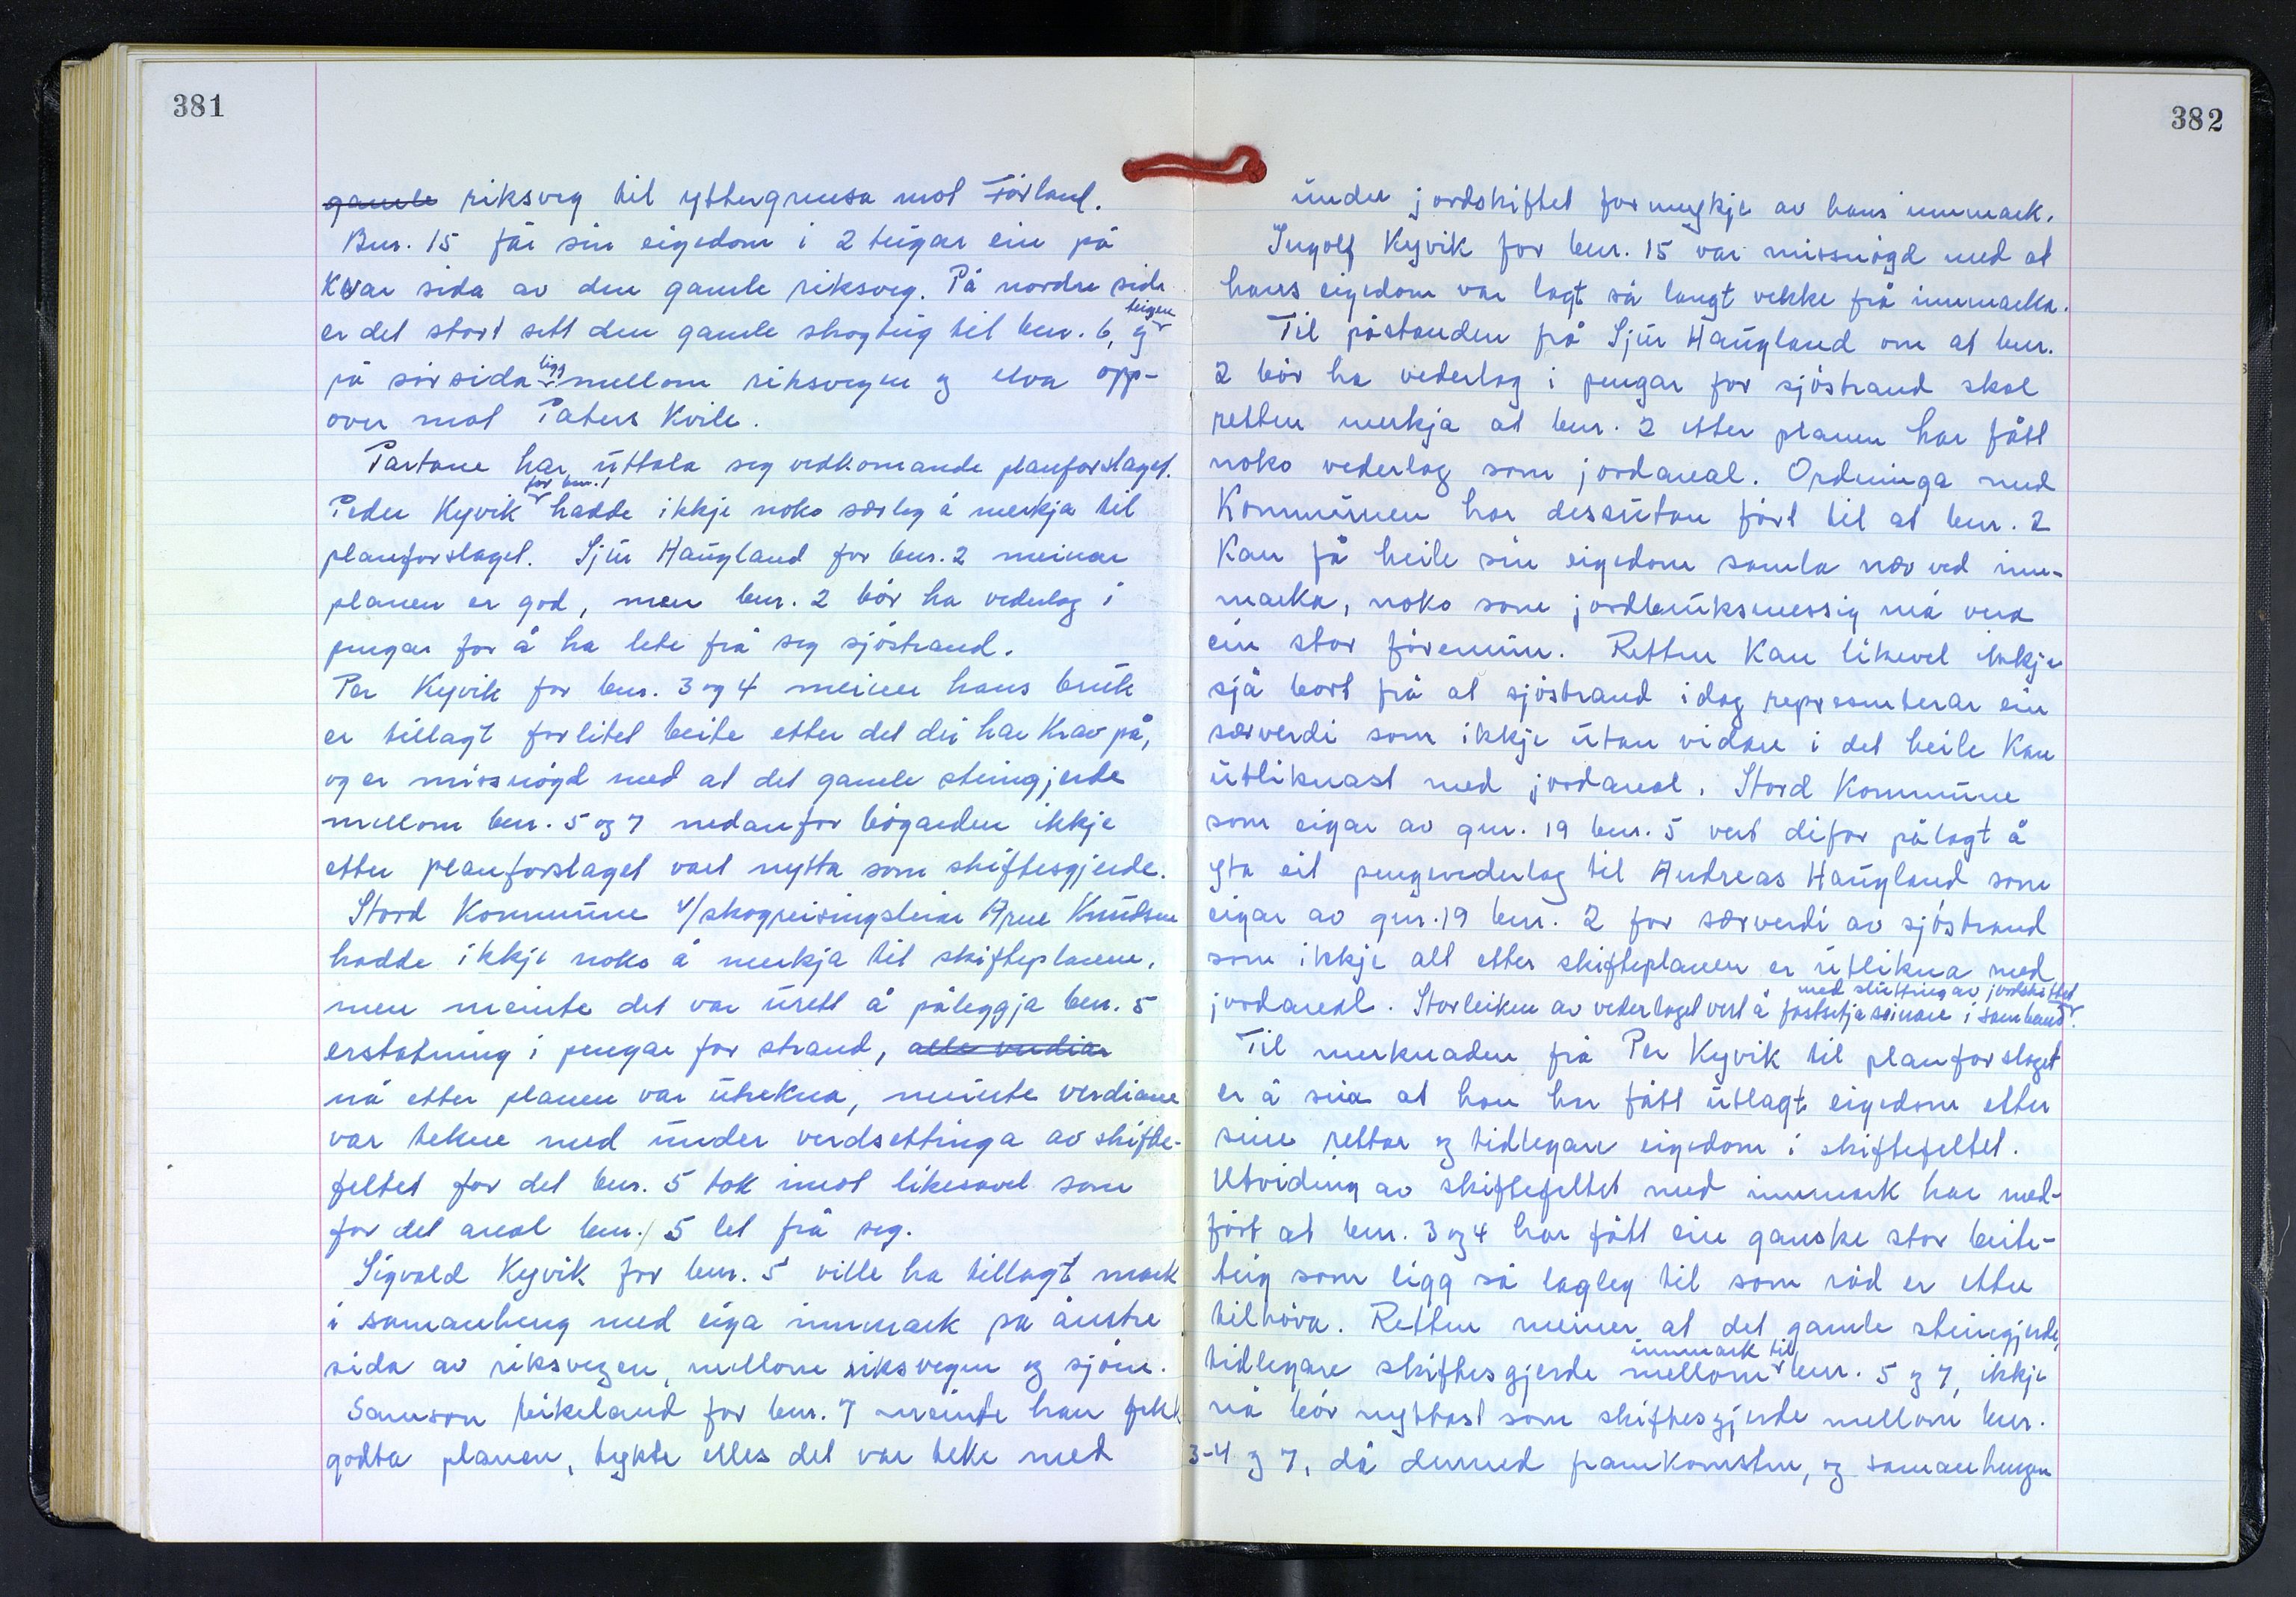 381
gamle riksveg til yttergrensa mot Førland.
Bnr. 15 får sin eigedom i 2 teigar ein på
kvar sida av den gamle riksveg. På nordre side
er det stort sett den gamle skogteig til bnr. 6, og teigen
på sørsida ligg mellom riksvegen og elva opp-
over mot Paters Kvile.
Partane har uttala seg vedkomande planforslaget.
Peder Kyvik for bnr. 1 hadde ikkje noko særleg å merkja til
planforslaget. Sjur Haugland for bnr. 2 meinar
planen er god, men bnr. 2 bør ha vederlag i
pengar for å ha lete frå seg sjøstrand.
Per Kyvik for bnr. 3 og 4 meiner hans bruk
er tillagt forlitet beite etter det dei har krav på,
og er missnøgd med at det gamle steingjerde
mellom bnr. 5 og 7 nedanfor bøgarden ikkje
etter planforslaget vart nytta som skiftesgjerde.
Stord Kommune v/skogreisingsleiar Arne Knudsen
hadde ikkje noko å merkja til skifteplanen,
men meinte det var urett å påleggja bnr. 5
erstatning i pengar for strand, alle verdiar
nå etter planen var utrekna, meinte verdiane
var tekne med under verdsettinga av skifte-
feltet for det bnr. 5 tok imot likesovel som
for det areal bnr. 5 let frå seg.
Sigvald Kyvik for bnr. 5 ville ha tillagt mark
i samanheng med eiga innmark på austre
sida av riksvegen, mellom riksvegen og sjøen.
Samson Leikeland for bnr. 7 meinte han fekk
godta planen, tykte elles det var teke med
382
under jordskiftet formykje av hans innmark.
Ingolf Kyvik for bnr. 15 var missnøgd med at
hans eigedom var lagt så langt vekke frå innmarka.
Til påstanden frå Sjur Haugland om at bnr.
2 bør ha vederlag i pengar for sjøstrand skal
retten merkja at bnr. 2 etter planen har fått
noko vederlag som jordareal. Ordninga med
Kommunen har dessutan ført til at bnr. 2
kan få heile sin eigedom samla nær ved inn-
marka, noko som jordbruksmessig må vera
ein stor føremun. Retten kan likevel ikkje
sjå bort frå at sjøstrand idag representerar ein
særverdi som ikkje utan vidare i det heile kan
utliknast med jordareal. Stord Kommune
som eigar av gnr. 19 bnr. 5 vert difor pålagt å
yta eit pengevederlag til Andreas Haugland som
eigar av gnr. 19 bnr. 2 for særverdi av sjøstrand
som ikkje alt etter skifteplanen er utlikna med
jordareal. Storleiken av vederlaget vert å fastsetja seinare i samband med sluttning av jordskiftet.
Til merknaden frå Per Kyvik til planforslaget
er å seia at han har fått utlagt eigedom etter
sine rettar og tidlegare eigedom i skiftefeltet.
Utviding av skiftefeltet med innmark har med-
ført at bnr. 3 og 4 har fått ein ganske stor beite-
teig som ligg så lagleg til som råd er etter
tilhøva. Retten meiner at det gamle steingjerde,
tidlegare skiftesgjerde mellom innmark til bnr. 5 og 7, ikkje
nå bør nyttast som skiftesgjerde mellom bnr.
3-4 og 7, då dermed framkomsten, og samanhengen